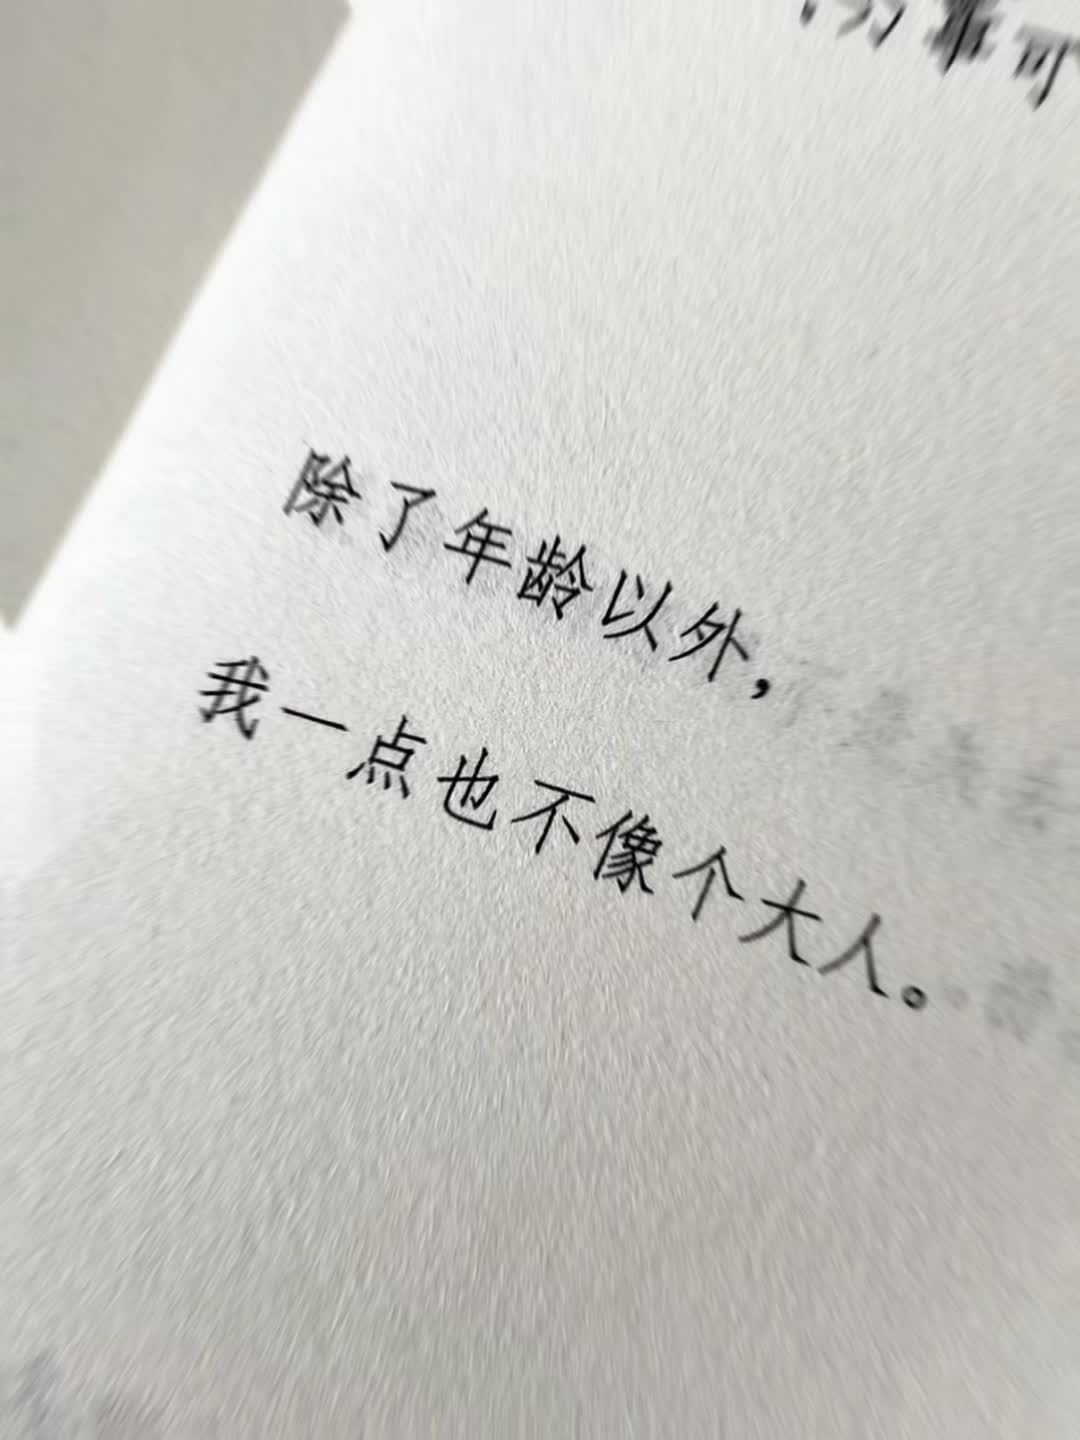 除了年龄以外，
我一点也不像个大人。